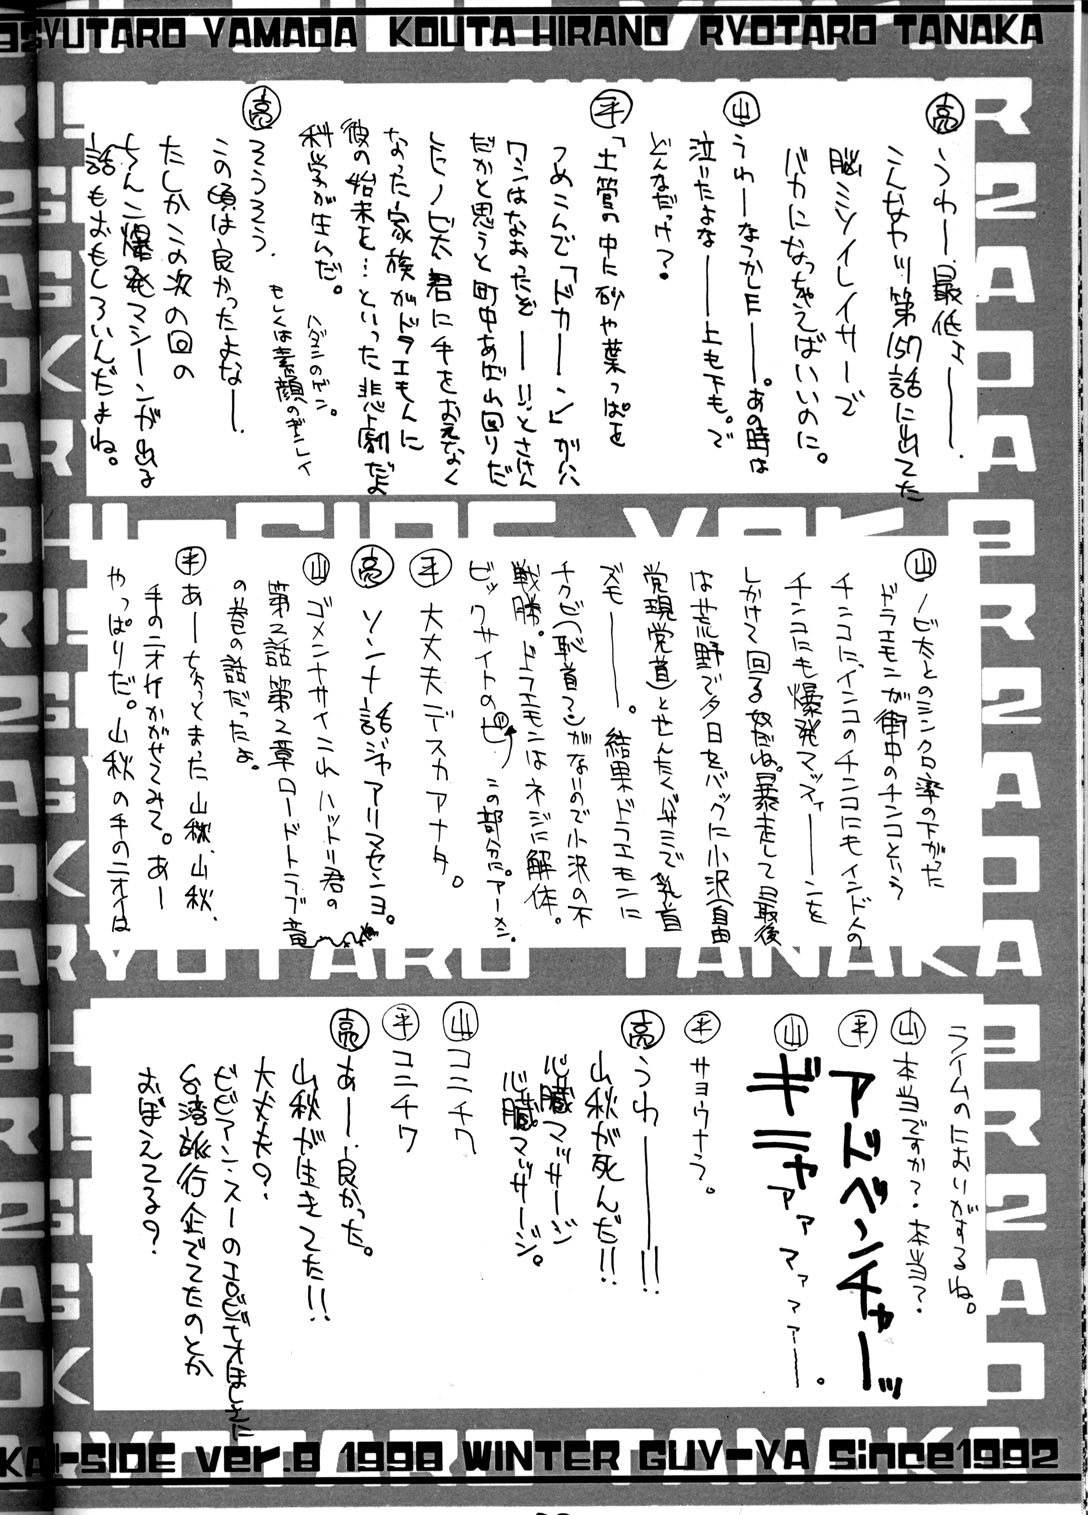 YUTARO YAMADA KOUTA HIRANO RYOTARO TANAKA
亮 うわー、最低ょーーー.
こんなヤツ第157話に出てた
脳ミソイレイサーで
バカになっちゃえばいいのに。
山 うわーなつかしEーー。あの時は
泣いたよなーー上も下も。で
どんなだっけ?
平 「土管の中に砂や葉っぱを
つめこんで「ドカーーン」がハ
ワシはなおったぞーー!!とさけん
だかと思うと町中あばれ回りだ
したノビ太君に手をおえなく
なった家族がドラエもんに
彼の始末を…といった悲劇だよ
科学が生んだ。
ハダシのゲン。
もしくは素顔のギンレイ
亮 そうそう.
この頃は良かったよなー.
たしかこの次の回の
ちんこ爆発マシーンが出る
話もおもしろいんだよね。
山 ノビ太とのシンクロ率の下がった
ドラエモンが街中のチンコという
チンコに、インコのチンコにもインド人の
チンコにも爆発マッスィーーンを
しかけて回る奴だね。暴走して最後
は荒野で夕日をバックに小沢(自由
党現党首)とせんたくバサミで乳首
ズモーーー。結果ドラエモンに
チクビ(恥首マン)がないので小沢の不
戦勝。ドラエモンはネジに解体。
ビックサイトのヒ この部分に。アーメン.
平 大丈夫デスカアナタ。
亮 ソンナ話ジャアーリマセンヨ。
山 ゴメンナサイこれハットリ君の
第2話第2章ロードトラブ竜
の巻の話だったょ。
平 あーちょっとまった山秋、山秋、
手のニオイかがせてみて。あー
やっぱりだ。山秋の手のニオイは
ライムのにおいがするね。
山 本当ですか?・本当?・
平 アドベンチャーッ
山 ギニャァァァァァァー。
平 サョウナラ。
亮 うわーーー!!
山秋が死んだ!!
心臓マッサージ
心臓マッサージ。
山 コニチワ
平 コニチワ
亮 あー、良かった。
山秋が生きてた!!
大丈夫?
ビビアン・スーのエロビデオほしさに
台湾旅行企ててたのとか
おぼえてる?
KAI-SIDE ver.8 1998 WINTER GUY-YA Since1992